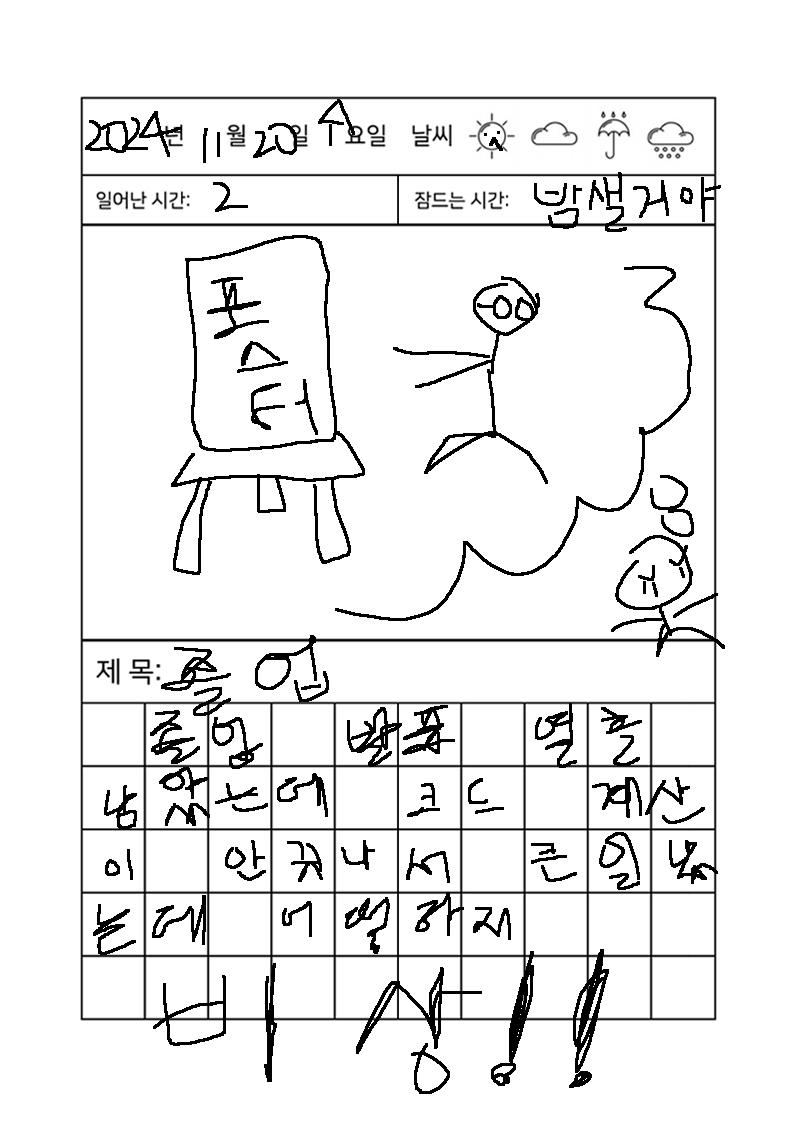 2024년 11월 20일 수요일 날씨
일어난 시간: 2 잠드는 시간: 밤샐거야
포스터
제 목: 졸업
졸업 발표 열흘
남았는데 코드 계산
이 안 끝나서 큰일 났
는데 어떡하지
비상!!